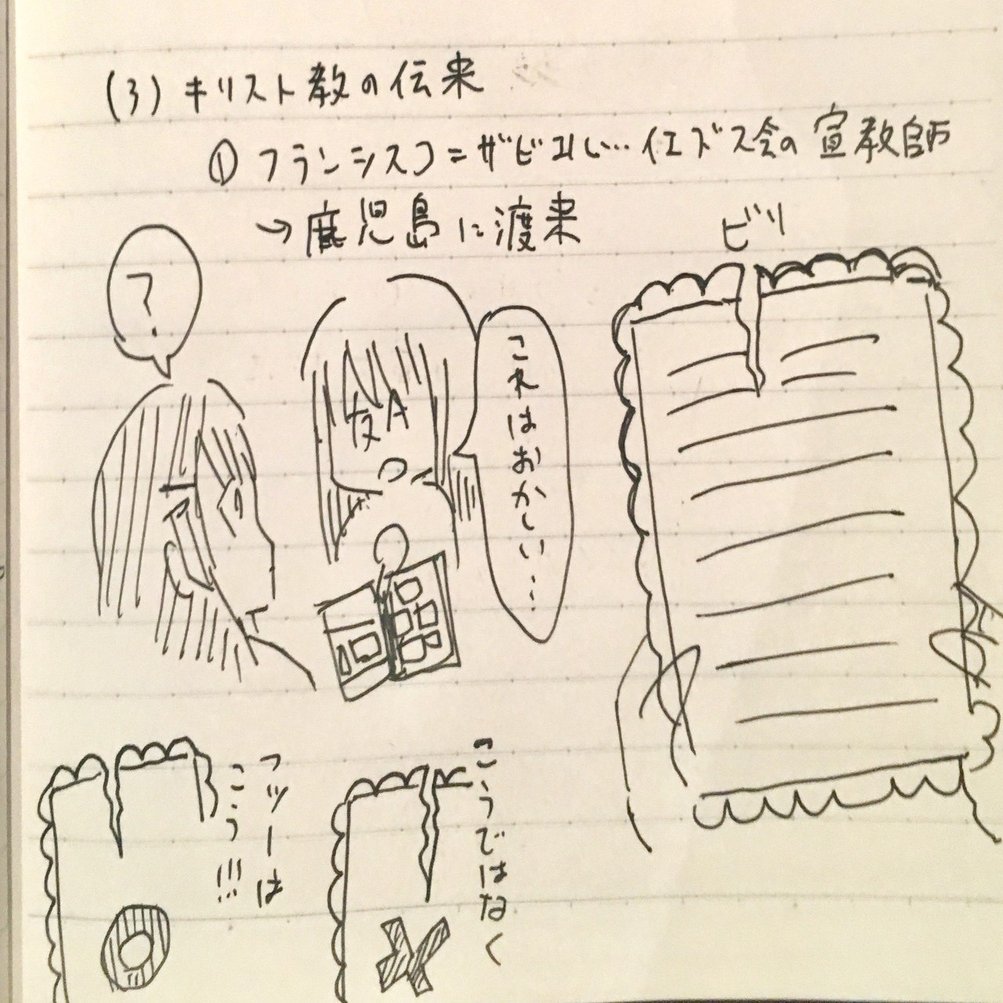 (3) キリスト教の伝来
① フランシスコ=ザビエル…イエズス会の宣教師
→鹿児島に渡来
ビリ
?
友A
これはおかしい…
フツーは
こう!!!
こうではなく